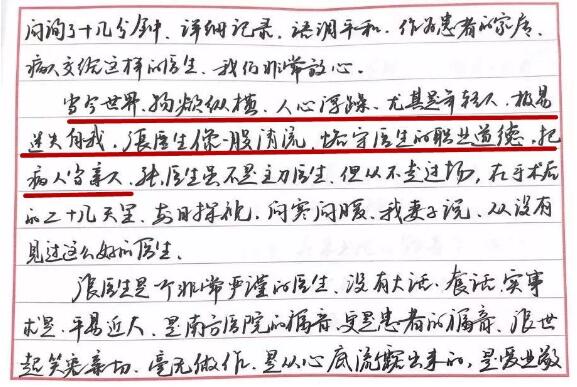 问询了十几分钟、详细记录、语调平和、作为患者的家属、
病人交给这样的医生、我们非常放心。
当今世界、物欲纵横、人心浮躁、尤其是年轻人、极易
迷失自我、張医生像一股清流、恪守医生的职业道德、把
病人当亲人、張医生虽不是主刀医生、但从不走过场，在手术后
的二十几天里、每日探视、问寒问暖、我妻子说、从没有
见过这么好的医生、
張医生是个非常严谨的医生、没有大话、套话、实事
求是、平易近人、是南方医院的福音、更是患者的福音、張世
起笑乘亲切、毫无做作、是从心底流露出来的，是爱业敬